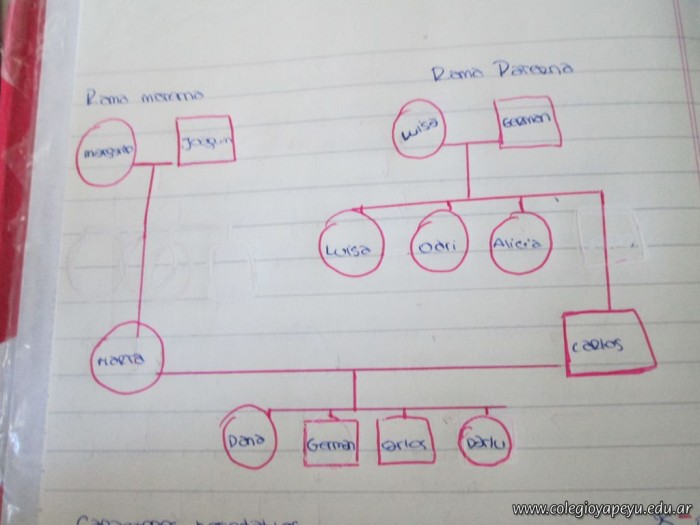 Rama materna
Rama Paterna
Luisa
German
Joaquin
Luisa
Odri
Alicia
Maria
Carlos
Dana
German
Carlos
www.colegioyapeyu.edu.ar